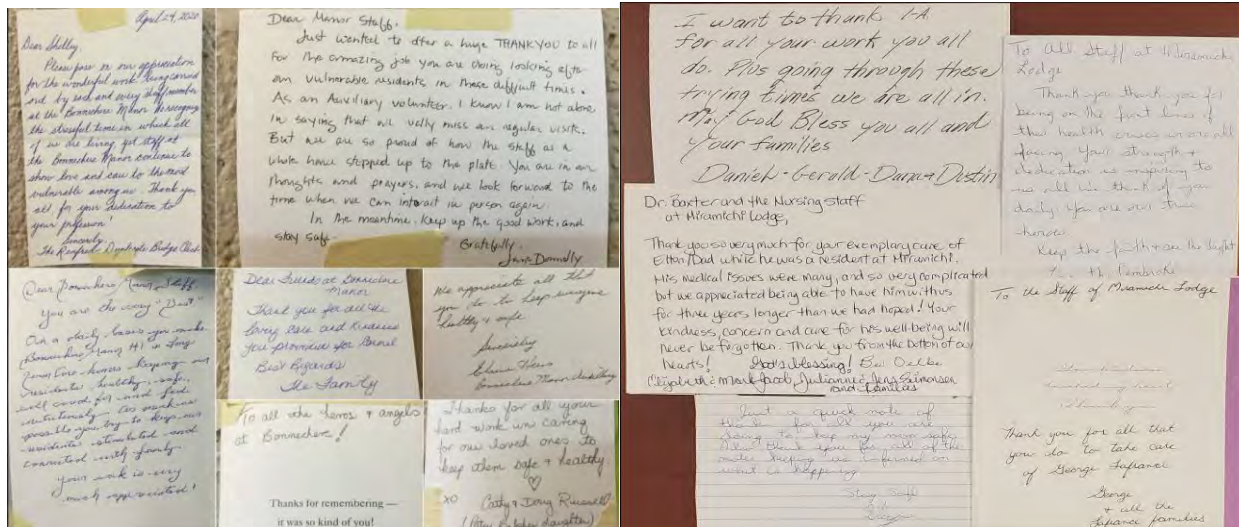 April 29, 2020
Dear Shelley,
Please pass on our appreciation
for the wonderful work being carried
out by each and every staff member
at the Bonnechere Manor. Recognizing
the stressful time in which all
of us are living, yet staff at
the Bonnechere Manor continue to
show love and care to the most
vulnerable among us. Thank you
all, for your dedication to
your profession!
Sincerely,
The Renfrew Duplicate Bridge Club
Dear Manor Staff.
Just wanted to offer a huge THANK YOU to all
for the amazing job you are doing looking after
our vulnerable residents in these difficult times.
As an Auxiliary volunteer, I know I am not alone
in saying that we really miss our regular visits.
But we are so proud of how the staff as a
whole have stepped up to the plate. You are in our
thoughts and prayers, and we look forward to the
time when we can interact in person again.
In the meantime, keep up the good work, and
stay safe.
Gratefully,
Donnelly
Dear Bonnechere Manor Staff
You are the very "Best"
On a daily basis you make
Bonnechere Manor #1 in Long
Term Care homes keeping our
residents healthy, safe,
well cared for and feed
nutritionally. As much as
possible you try to keep our
residents stimulated and
connected with family.
Your work is very
much appreciated!
Dear Friends at Bonnechere
Manor
Thank you for all the
loving care and kindness
you provided for
Best Regards
The Family
We appreciate all that
you do to keep everyone
healthy & safe
Sincerely
Bonnechere Manor
To all the heros & angels
at Bonnechere!
Thanks for remembering —
it was so kind of you!
Thanks for all your
hard work in caring
for our loved ones to
keep them safe & healthy.
XO
Cathy & Doug Russell
daughter)
I want to thank
for all your work you all
do. Plus going through these
trying times we are all in.
May God Bless you all and
your families
Daniel - Gerald - Dana & Dustin
To All Staff at Miramichi
Lodge
Thank you thank you for
being on the front lines of
this health crises we are all
facing. Your strength &
dedication is inspiring to
us all. We think of you
daily. You are our true
heroes.
Keep the faith & see the light
Pembroke
Dr. Baxter and the Nursing Staff
at Miramichi Lodge,
Thank you so very much for your exemplary care of
Elton/Dad while he was a resident at Miramichi.
His medical issues were many, and so very complicated
but we appreciated being able to have him with us
for three years longer than we had hoped! Your
kindness, concern and care for his well-being will
never be forgotten. Thank you from the bottom of our
hearts! God's blessing!
Elizabeth & Mark Jacob, Julianne & Jens Sorensen
and families
Just a quick note of
thanks for all you are
doing to keep my mom safe.
Also thank you for all of the
keeping us informed on
what is happening.
Stay Safe
To the Staff of Miramichi Lodge
Thank you for all that
you do to take care
of George Lafrance
George
& all the
Lafrance families